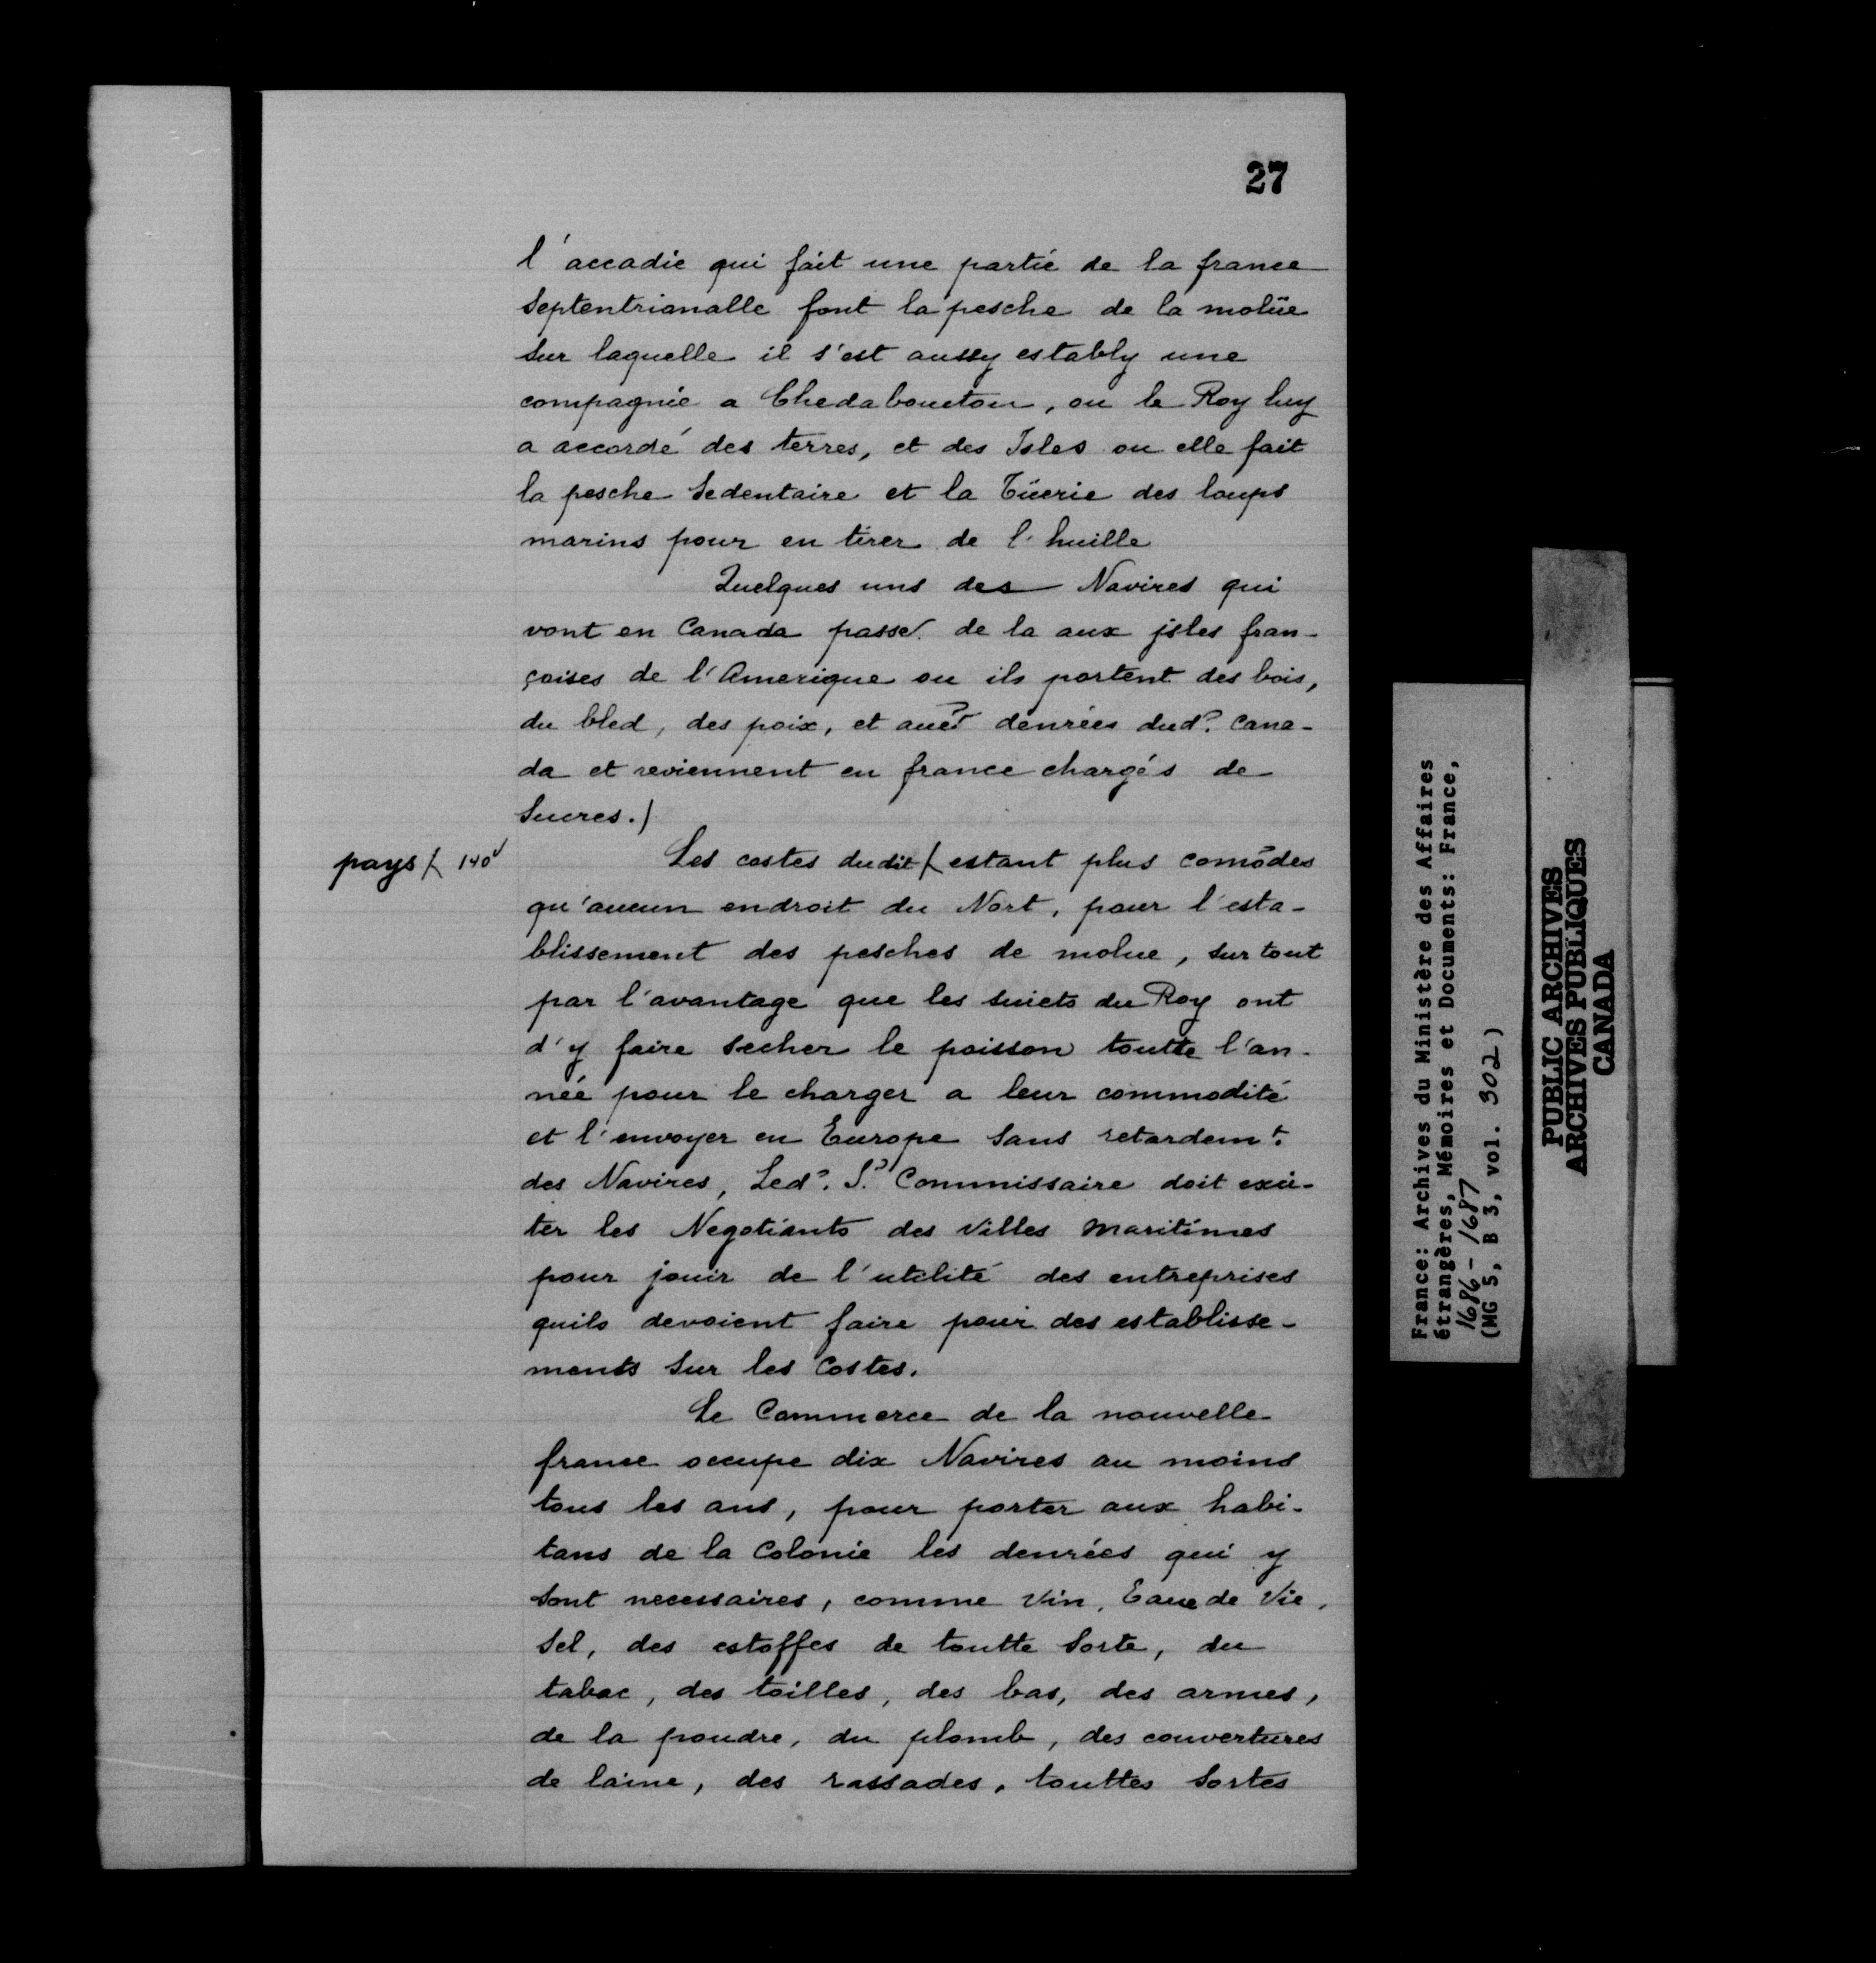 27
l'accadie qui fait une partie de la france
Septentrianalle font la pesche de la molüe
Sur laquelle il s'est aussy estably une
compagnie a Chedabouctou, ou le Roy luy
a accordé des terres, et des Isles ou elle fait
la pesche Sedentaire et la Tüerie des loups
marins pour en tirer de l'huille
Quelques uns des Navires qui
vont en Canada passe de la aux jsles fran-
çoises de l'Amerique ou ils portent des bois,
du bled, des poix, et denrées dud? Cana-
da et reviennent en france chargés de
Sucres.)
pays/ 140v
Les costes dudit / estant plus comōdes
qu'aucun endroit du Nort, pour l'esta-
blissement des pesches de molue, sur tout
par l'avantage que les suiets du Roy ont
d'y faire secher le poisson toutte l'an-
née pour le charger a leur commodité
et l'envoyer en Europe sans retardem.t
des Navires, Led? S? Commissaire doit exci-
ter les Negotiants des Villes Maritimes
pour jouir de l'utilité des entreprises
quils devoient faire pour des establisse-
ments sur les Costes.
Le Commerce de la nouvelle
france occupe dix Navires au moins
tous les ans, pour porter aux habi-
tans de la Colonie les denrées qui y
sont necessaires, comme Vin, Eaue de Vie,
Sel, des estoffes de toutte Sorte, du
tabac, des toilles, des bas, des armes,
de la poudre, du plomb, des couvertures
de laine, des rassades, touttes Sortes
France: Archives du Ministère des Affaires
étrangères, Mémoires et Documents: France,
1686-1687
(MG 5, B 3, vol. 302)
PUBLIC ARCHIVES
ARCHIVES PUBLIQUES
CANADA